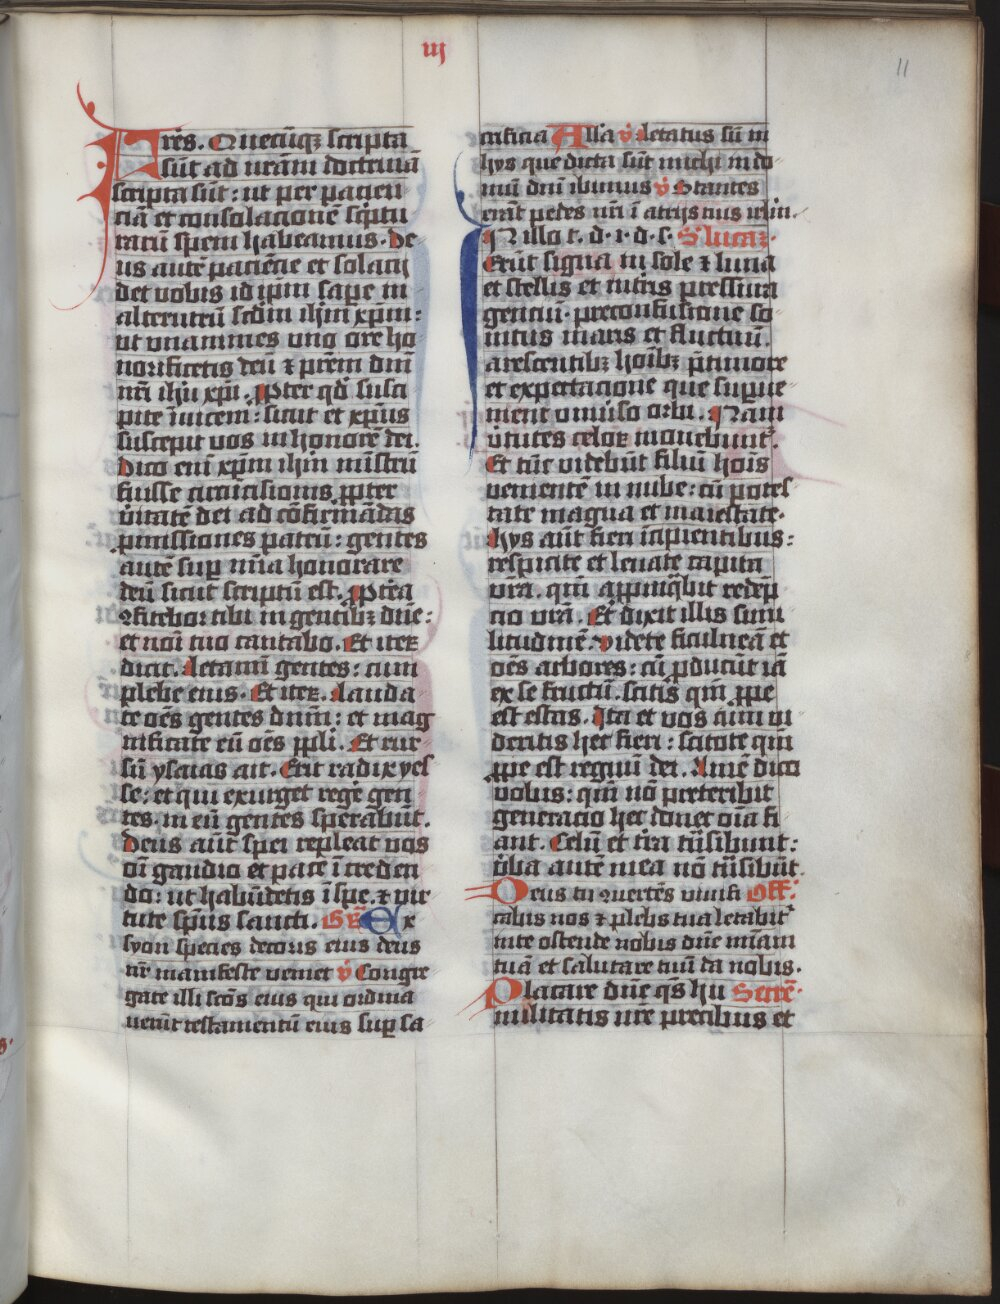 iij
11
Fres. Quecuqz scripta
sut ad nram doctrina
scripta sut: ut per pacien
cia et consolacione sciptu
raru spem habeamus. De
us aute paciencie et solacij
det vobis id ipm sape in
alterutru scdm ihm xpm:
ut unanimes uno ore ho
norificetis deu z prem dni
nri ihu xpi. Pter qd susci
pite inuicem: sicut et xpus
suscepit vos in honore dei.
Dico eni xpm ihm ministru
fuisse circucisionis ppter
uitate dei ad cofirmadas
pmissiones patru: gentes
aute sup mia honorare
deu sicut scriptu est. Pptea
9fitebor tibi in gentibz dne:
et noi tuo cantabo. Et iterz
dicit. Letamini gentes: cum
plebe eius. Et iterz. Lauda
te oes gentes dnm: et mag
nificate eu oes ppli. Et rur
su ysaias ait. Erit radix yes
se: et qui exurget rege gen
tes. in eu gentes sperabut.
Deus aut spei repleat vos
oi gaudio et pace i creden
do: ut habudetis i spe. z vir
tute spus sancti. Gr Ex
syon species decoris eius deus
nr manifeste veniet v Congre
gate illi scos eius qui ordina
uerut testamentu eius sup sa
crificia Alla v letatus su in
hys que dicta sut michi in do
mu dni ibimus v Stantes
erat pedes nri i atrijs tuis irlm.
IN illo t. d. i. d. s. S lucam.
Erut signa in sole z luna
et stellis et in tris pressura
genciu. pre confusione so
nitus maris et fluctuu.
arescentibz hoibz p timore
et expectacione que supue
nient uniuso orbi. Nam
uirtutes celorz mouebunt.
Et tuc videbut filiu hois
veniente in nube: cu potes
tate magna et maiestate.
Hys aut fieri incipientibus:
respicite et leuate capita
vra. qm appinqbit redep
cio vra. Et dixit illis simi
litudine. Videte ficulnea et
oes arbores: cu pducut ia
ex se fructu. scitis qm ppe
est estas. Ita et vos cum vi
deritis hec fieri: scitote qm
ppe est regnu dei. Ame dico
vobis: qm no preteribit
generacio hec donec oia fi
ant. Celu et tra trasibunt:
vba aute mea no trasibut.
Deus tu 9uertes viuifi Off:
cabis nos z plebs tua letabit
in te ostende nobis dne miam
tua et salutare tuu da nobis.
Placare dne qs hu Secre.
militatis nre precibus et